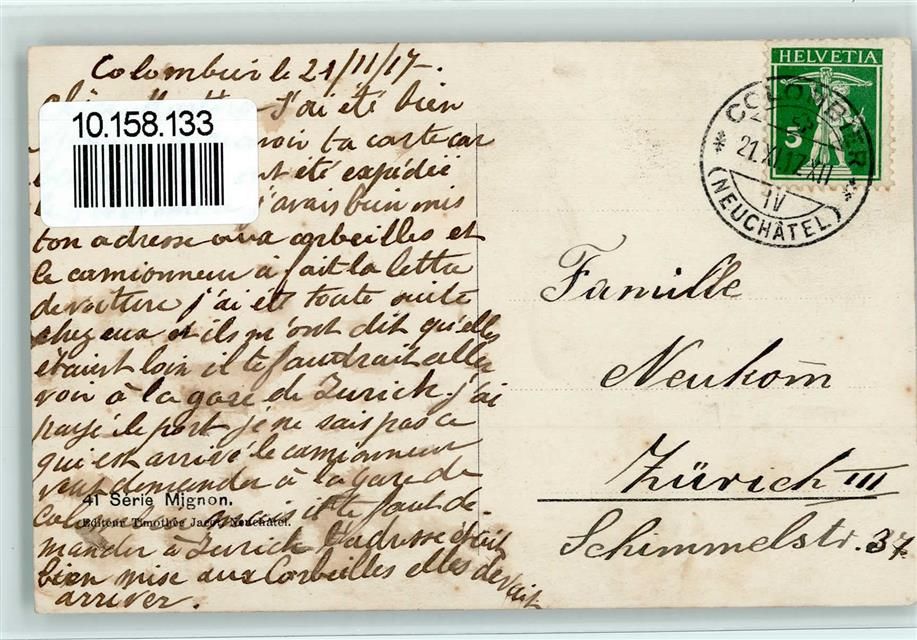 Colombier le 21/11/17.
J'ai été bien
10.158.133
voir ta carte car
été expédié
j'avais bien mis
ton adresse aux corbeilles et
le camionneur à fait la lettre
de voiture j'ai été toute suite
chez eux et ils m'ont dit qu'elles
étaient loin il te faudrait aller
voir à la gare de Zurich. j'ai
payé le port je ne sais pas ce
qui est arrivé le camionneur
veut demander à la gare de
mais il te faut de-
mander à Zurich l'adresse était
bien mise aux Corbeilles elles devait
arriver.
41 Série Mignon.
Editeur Timothée Jacot, Neuchâtel.
HELVETIA
5
COLOMBIER
21.XI.17.XII
IV
(NEUCHÂTEL)
Famille
Neukom̄
Zürich III
Schimmelstr. 37.